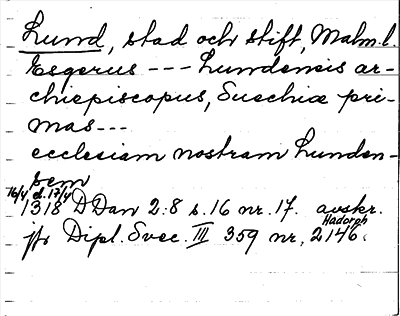 Lund, stad och stift, Malm. l.
Esgerus --- Lundensis ar-
chiepiscopus, Suechiæ pri-
mas---
ecclesiam nostram Lunden-
sem
16/4 el. 17/4
1318 DDan 2:8 s. 16 nr. 17. avskr.
Hadorph
jfr Dipl. Svec. III 359 nr. 2146.